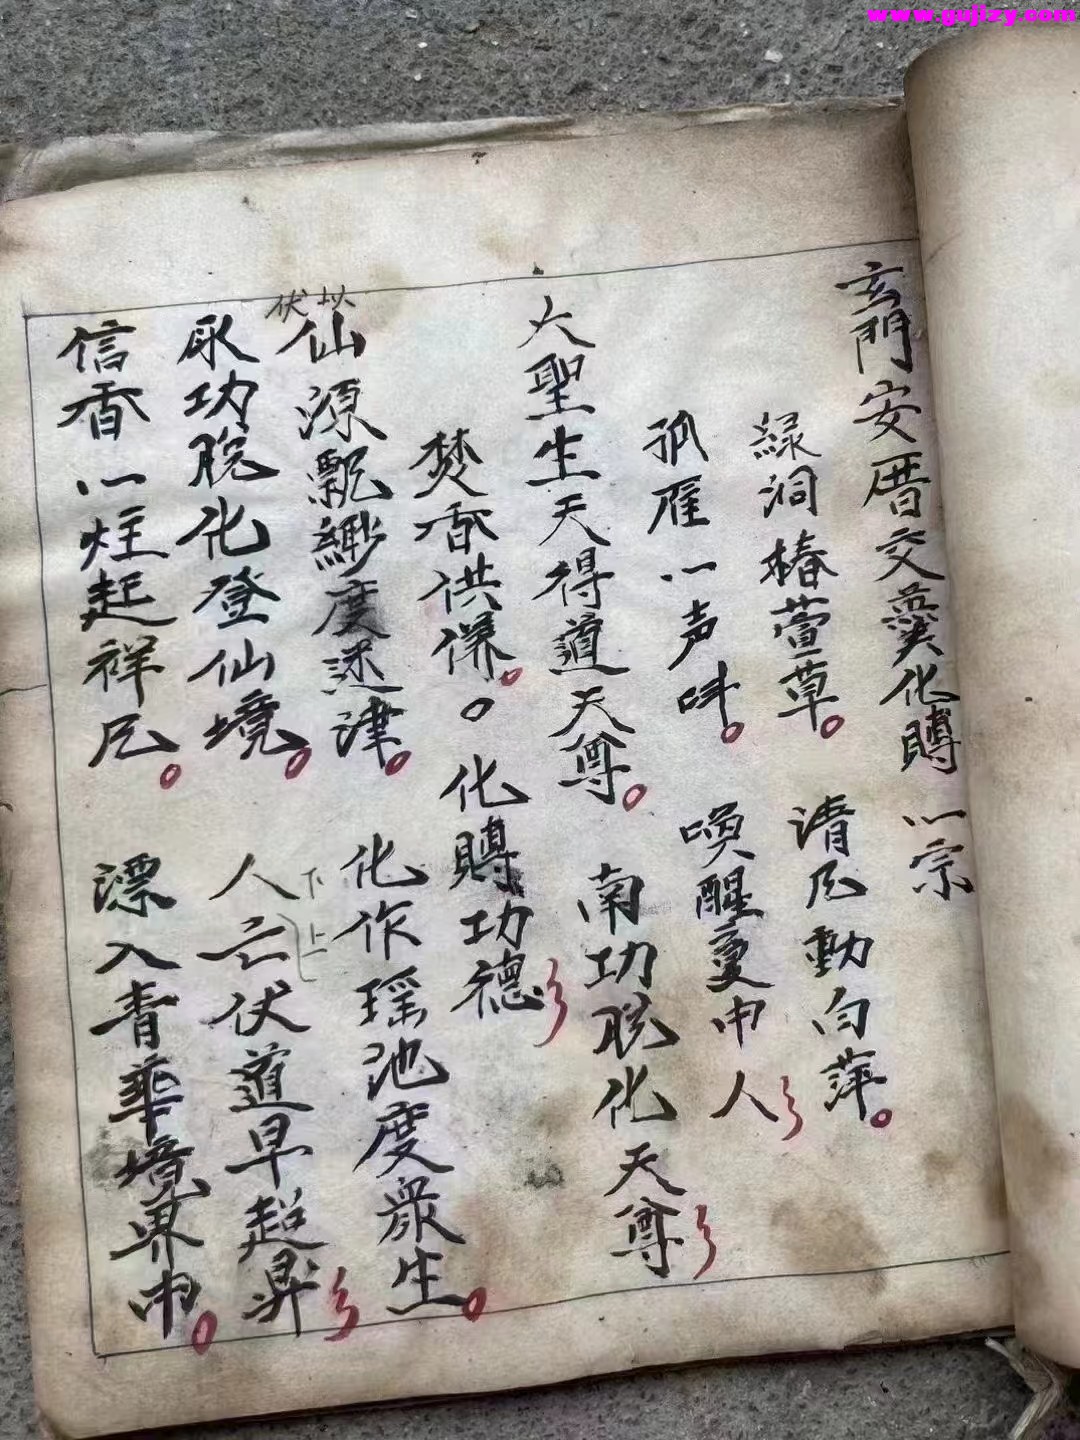 www.gujizy.com
玄門安厝交羹化賻一宗
綠洞椿萱草。清风動白萍。
孤雁一声呌。喚醒夢中人
大聖生天得道天尊。南功脫化天尊
焚香供养。。化賻功德
伏以
仙源飄緲度迷津。化作瑶池度衆生。
永功脫化登仙境。人亡伏道早超昇
下上
信香一炷起祥风。漂入青華境界中。